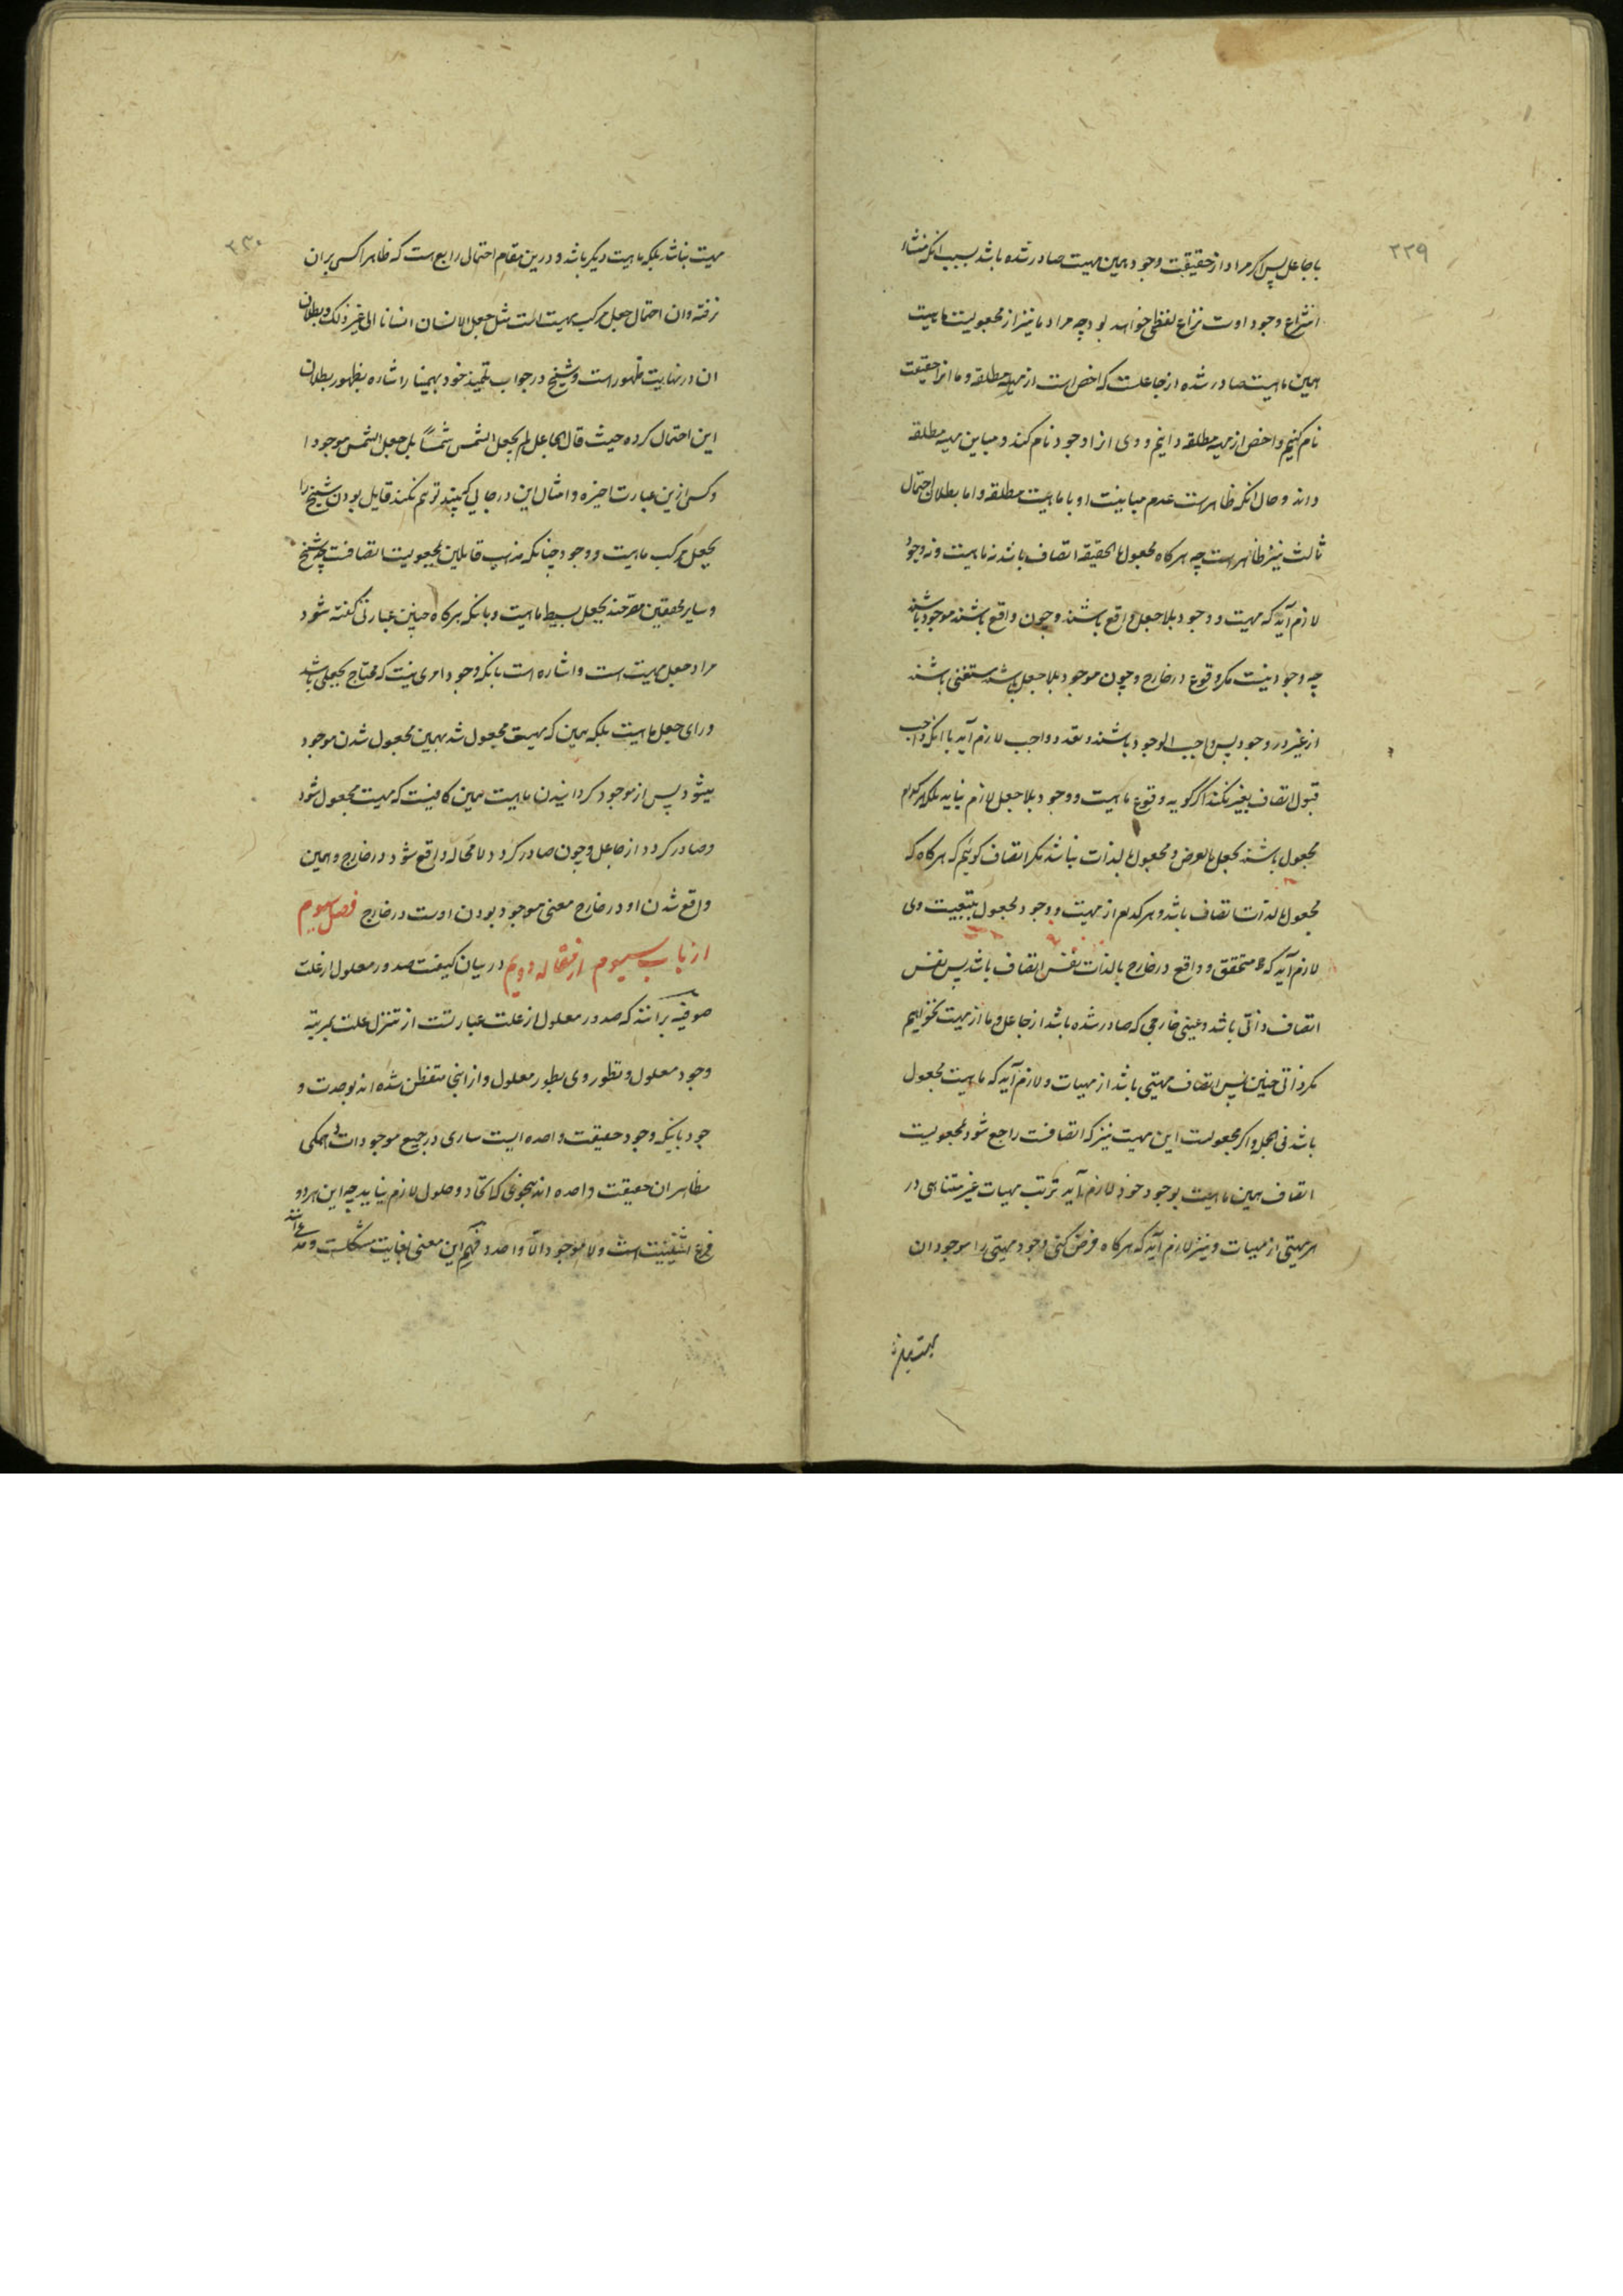 ۲۲۹
با جاعل پس اکر مراد از حقیقت وجود همین مهیت صادر شده باشد بسبب انکه منشاء
انتزاع وجود اوست نزاع لفظی خواهد بود چه مراد ما نیز از مجعولیت ماهیت
همین ماهیت صادر شده از جاعلست که اخص است از مهیه مطلقه و ما انرا حقیقت
نام کنیم و اخص از مهیه مطلقه دانیم و وی انرا وجود نام کند و مباین مهیه مطلقه
داند و حال انکه ظاهرست عدم مباینت او با ماهیت مطلقه و اما بطلان احتمال
ثالث نیز ظاهر است چه هرکاه مجعول بالحقیقه اتصاف باشد نه ماهیت و نه وجود
لازم آید که مهیت و وجود بلا جعل واقع باشند و چون واقع باشند موجود باشند
چه وجود نیست مکر وقوع در خارج و چون موجود بلا جعل باشند مستغنی باشند
از غیر در وجود پس واجب الوجود باشند و تعدد واجب لازم آید با انکه واجب
قبول اتصاف بغیر نکند اکر کویه وقوع ماهیت و وجود بلا جعل لازم نیاید بلکه هرکدام
مجعول باشند بجعل بالعرض و مجعول بالذات نباشد مکر اتصاف کوئیم که هرکاه که
مجعول بالذات اتصاف باشد و هرکدام از مهیت و وجود مجعول بتبعیت وی
لازم آید که متحقق و واقع در خارج بالذات نفس اتصاف باشد پس نفس
اتصاف ذاتی باشد و عینی خارجی که صادر شده باشد از جاعل و ما از مهیت نخواهیم
مکر ذاتی چنین پس اتصاف مهیتی باشد از مهیات و لازم آید که ماهیت مجعول
باشد فی الجمله و اکر مجعولیت این مهیت نیز که اتصافست راجع شود بمجعولیت
اتصاف همین ماهیت بوجود خود لازم آید ترتب مهیات غیر متناهی در
هر مهیتی از مهیات و نیز لازم آید که هرکاه فرض کنی وجود مهیتی را موجود ان
۲۳۰
مهیت نباشد بلکه ماهیت دیکر باشد و درین مقام احتمال رابع هست که ظاهرا کسی بران
نرفته و ان احتمال جعل مرکب مهیت است مثل جعل الانسان انسانا الی غیر ذلک و بطلان
ان در نهایت ظهور است و شیخ در جواب تلمیذ خود بهمنیار اشاره بظهور بطلان
این احتمال کرده حیث قال الجاعل لم یجعل الشمس شمسًا بل جعل الشمس موجودا
و کسی ازین عبارت اخیره و امثال این در جائی که بیند توهم نکند قایل بودن شیخ را
بجعل مرکب ماهیت و وجود چنانکه مذهب قایلین بمجعولیت اتصافست چه شیخ
و سایر محققین مصرحند بجعل بسیط ماهیت و بانکه هرکاه چنین عبارتی کفته شود
مراد جعل مهیت است و اشاره است بانکه وجود امری نیست که محتاج بجعلی باشد
ورای جعل ماهیت بلکه همین که مهیت مجعول شد بهمین مجعول شدن موجود
میشود پس از موجود کردانیدن ماهیت همین کافیست که مهیت مجعول شود
و صادر کردد از جاعل و چون صادر کردد لا محاله واقع شود در خارج و همین
واقع شدن او در خارج معنی موجود بودن اوست در خارج فصل سیوم
از باب سیوم از مقاله دویم در بیان کیفیت صدور معلول از علت
صوفیه برآنند که صدور معلول از علت عبارتست از تنزل علت بمرتبه
وجود معلول و تطور وی بطور معلول و از اینجا متفطن شده اند بوحدت و
جود باینکه وجود حقیقت واحده ایست ساری در جمیع موجودات و همکی
مظاهر ان حقیقت واحده اند بنحوی که اتحاد و حلول لازم نیاید چه این هر دو
فرع اثنینیت است و لا موجود الا واحد و فهم این معنی بغایت مشکلست و